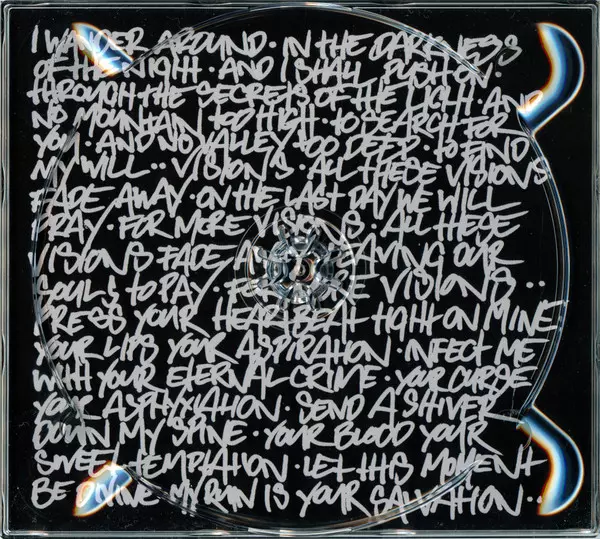 I WANDER AROUND · IN THE DARKNESS
OF THE NIGHT · AND I SHALL PUSH ON ·
THROUGH THE SECRETS OF THE LIGHT · AND
NO MOUNTAIN TOO HIGH · TO SEARCH FOR
YOU · AND NO VALLEY TOO DEEP · TO FIND
MY WILL · · VISIONS · ALL THESE VISIONS
FADE AWAY · ON THE LAST DAY WE WILL
PRAY · FOR MORE VISIONS · ALL THESE
VISIONS FADE OUR
SOULS TO PAY · VISIONS · ·
PRESS YOUR HEARTBEAT TIGHT ON MINE
YOUR LIPS YOUR ASPIRATION · INFECT ME
WITH YOUR ETERNAL CRIME · YOUR CURSE
YOUR ASPHYXIATION · SEND A SHIVER
DOWN MY SPINE · YOUR BLOOD YOUR
SWEET TEMPTATION · LET THIS MOMENT
BE DIVINE MY RUIN IS YOUR SALVATION · ·